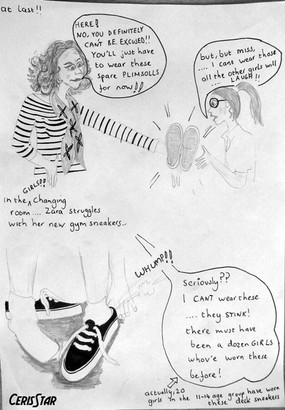 at Last!!
HERE!
NO, YOU DEFINITELY
CAN'T BE EXCUSED!!
YOU'LL just have
to wear these
spare PLIMSOLLS
for now!!!
but, but, miss,
.... I cant wear those
all the other girls will
.... LAUGH!!
GIRLS??
in the changing
room.... Zara struggles
with her new gym sneakers...
WHUMP!!!
Seriously??
I CANT wear these
.... they STINK!
there must have
been a dozen GIRLS
whov'e worn these
before!
actually, 20
girls in the 11-14 age group have worn
these deck sneakers
CERISSTAR